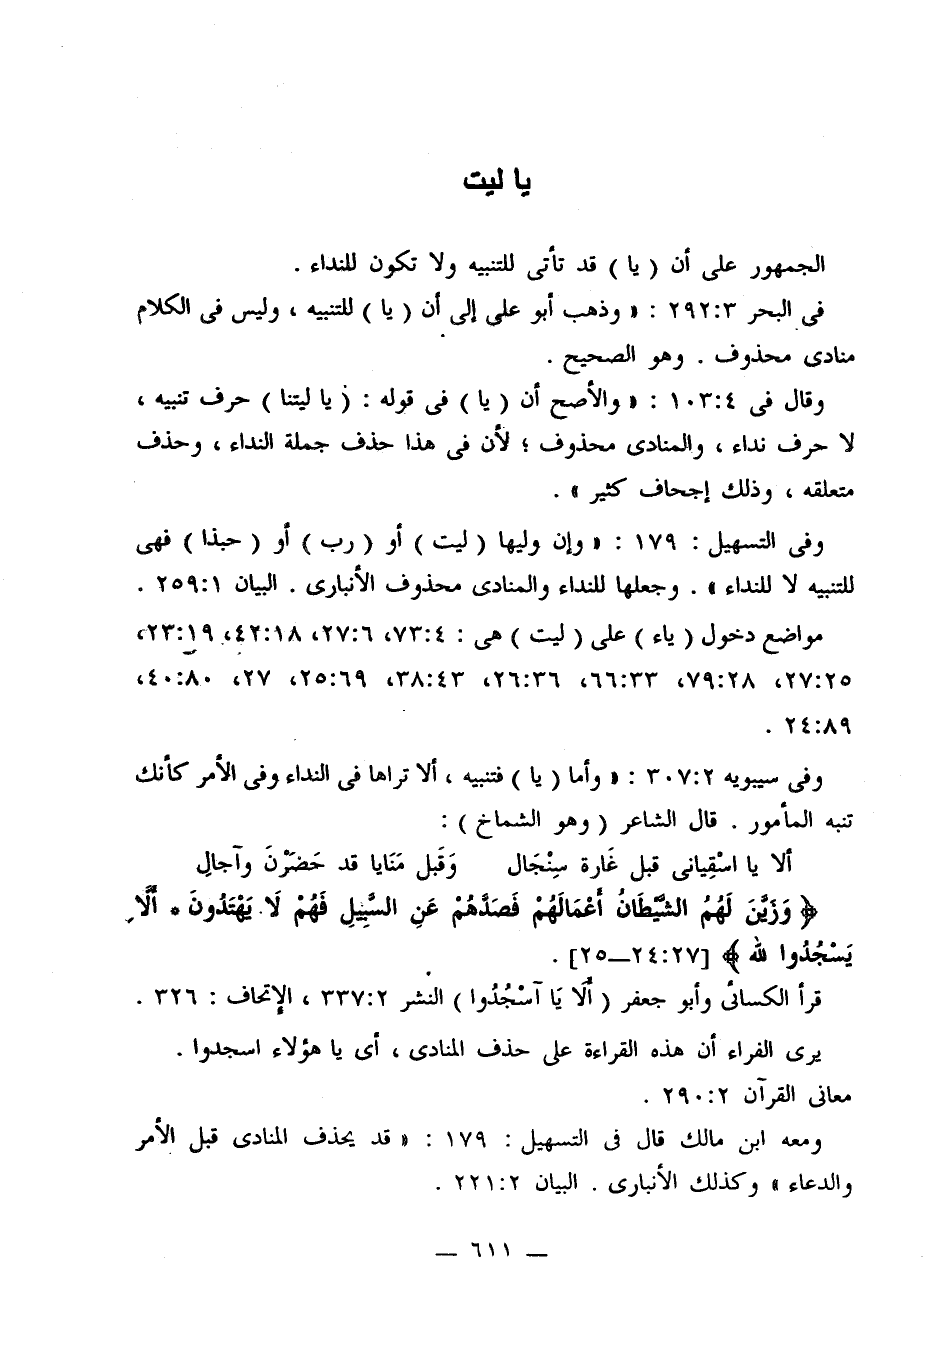 يا ليت
الجمهور على أن ( يا ) قد تأتى للتنبيه ولا تكون للنداء .
فى البحر ٢٩٢:٣ : « وذهب أبو على إلى أن ( يا ) للتنبيه ، وليس فى الكلام
منادى محذوف . وهو الصحيح .
وقال فى ١٠٣:٤ : « والأصح أن ( يا ) فى قوله : ( يا ليتنا ) حرف تنبيه ،
لا حرف نداء ، والمنادى محذوف ؛ لأن فى هذا حذف جملة النداء ، وحذف
متعلقه ، وذلك إجحاف كثير » .
وفى التسهيل : ١٧٩ : « وإن وليها ( ليت ) أو ( رب ) أو ( حبذا ) فهى
للتنبيه لا للنداء » . وجعلها للنداء والمنادى محذوف الأنبارى . البيان ٢٥٩:١ .
مواضع دخول ( ياء ) على ( ليت ) هى : ٧٣:٤، ٢٧:٦، ٤٢:١٨، ٢٣:١٩،
٢٧:٢٥، ٧٩:٢٨، ٦٦:٣٣، ٢٦:٣٦، ٣٨:٤٣، ٢٥:٦٩، ٢٧، ٤٠:٨٠،
٢٤:٨٩ .
وفى سيبويه ٣٠٧:٢ : « وأما ( يا ) فتنبيه ، ألا تراها فى النداء وفى الأمر كأنك
تنبه المأمور . قال الشاعر ( وهو الشماخ ) :
ألا يا اسْقِيانى قبل غَارة سِنْجَال وَقَبل مَنَايا قد حَضَرْنَ وآجالِ
﴿ وَزَيَّنَ لَهُمُ الشَّيْطَانُ أَعْمَالَهُمْ فَصَدَّهُمْ عَنِ السَّبِيلِ فَهُمْ لَا يَهْتَدُونَ * أَلَّا
يَسْجُدُوا لله ﴾ [٢٤:٢٧—٢٥] .
قرأ الكسائى وأبو جعفر ( أَلَا يَا آسْجُدُوا ) النشر ٣٣٧:٢ ، الإتحاف : ٣٢٦ .
يرى الفراء أن هذه القراءة على حذف المنادى ، أى يا هؤلاء اسجدوا .
معانى القرآن ٢٩٠:٢ .
ومعه ابن مالك قال فى التسهيل : ١٧٩ : « قد يحذف المنادى قبل الأمر
والدعاء » وكذلك الأنبارى . البيان ٢٢١:٢ .
— ٦١١ —